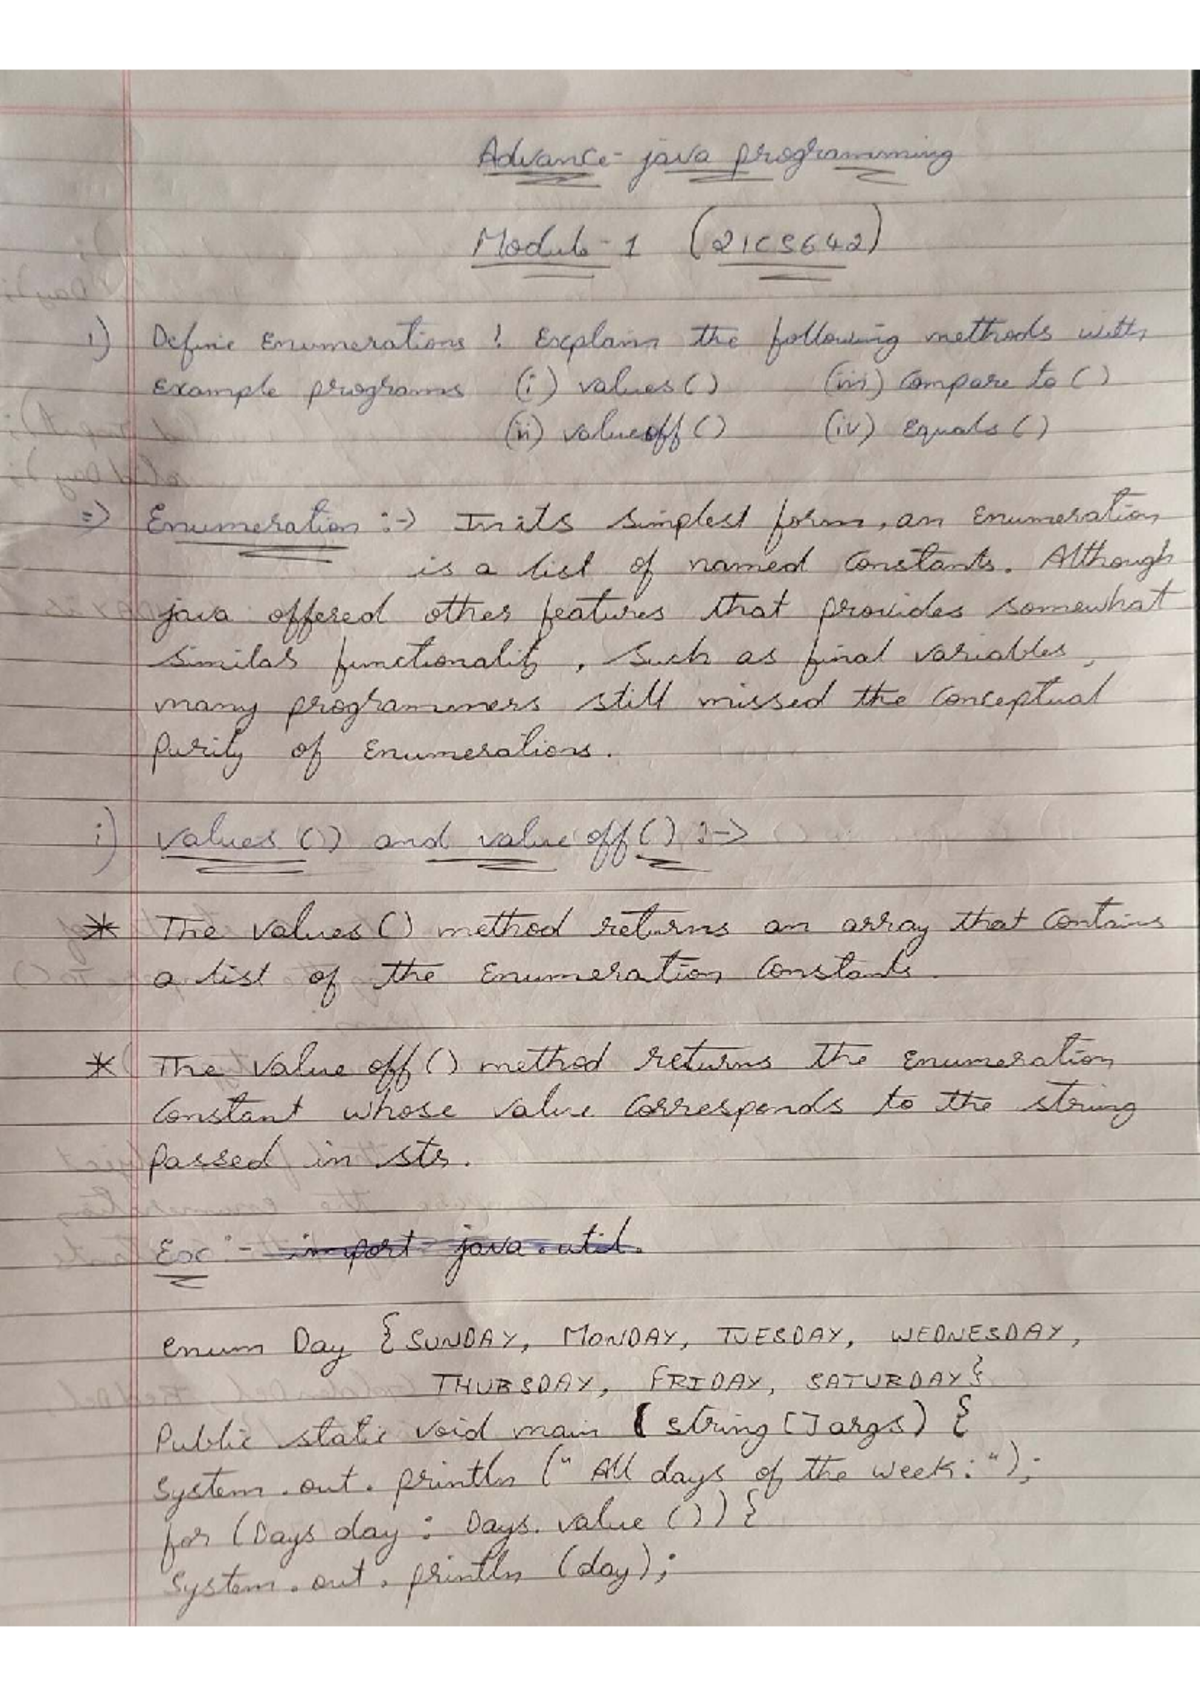 Advance- java programming
Module-1 (21CS642)
1) Define Enumerations ! Explain the following methods with
Example programs (i) values () (iii) Compare to ()
(ii) valueoff () (iv) Equals ()
=> Enumeration :-> In its simplest form, an Enumeration
is a list of named Constants. Although
java offered other features that provides somewhat
similar functionality, Such as final variables,
many programmers still missed the Conceptual
Purity of Enumerations.
i) values () and value off () :->
* The values () method returns an array that Contains
a list of the Enumeration Constants.
* The Value off () method returns the Enumeration
Constant whose value Corresponds to the string
Passed in str.
Ex :- import java.util.
enum Day {SUNDAY, MONDAY, TUESDAY, WEDNESDAY,
THURSDAY, FRIDAY, SATURDAY}
Public static void main (string [] args) {
System.out.println (" All days of the week: ");
for (Days day : Days.value ()) {
System.out.println (day);